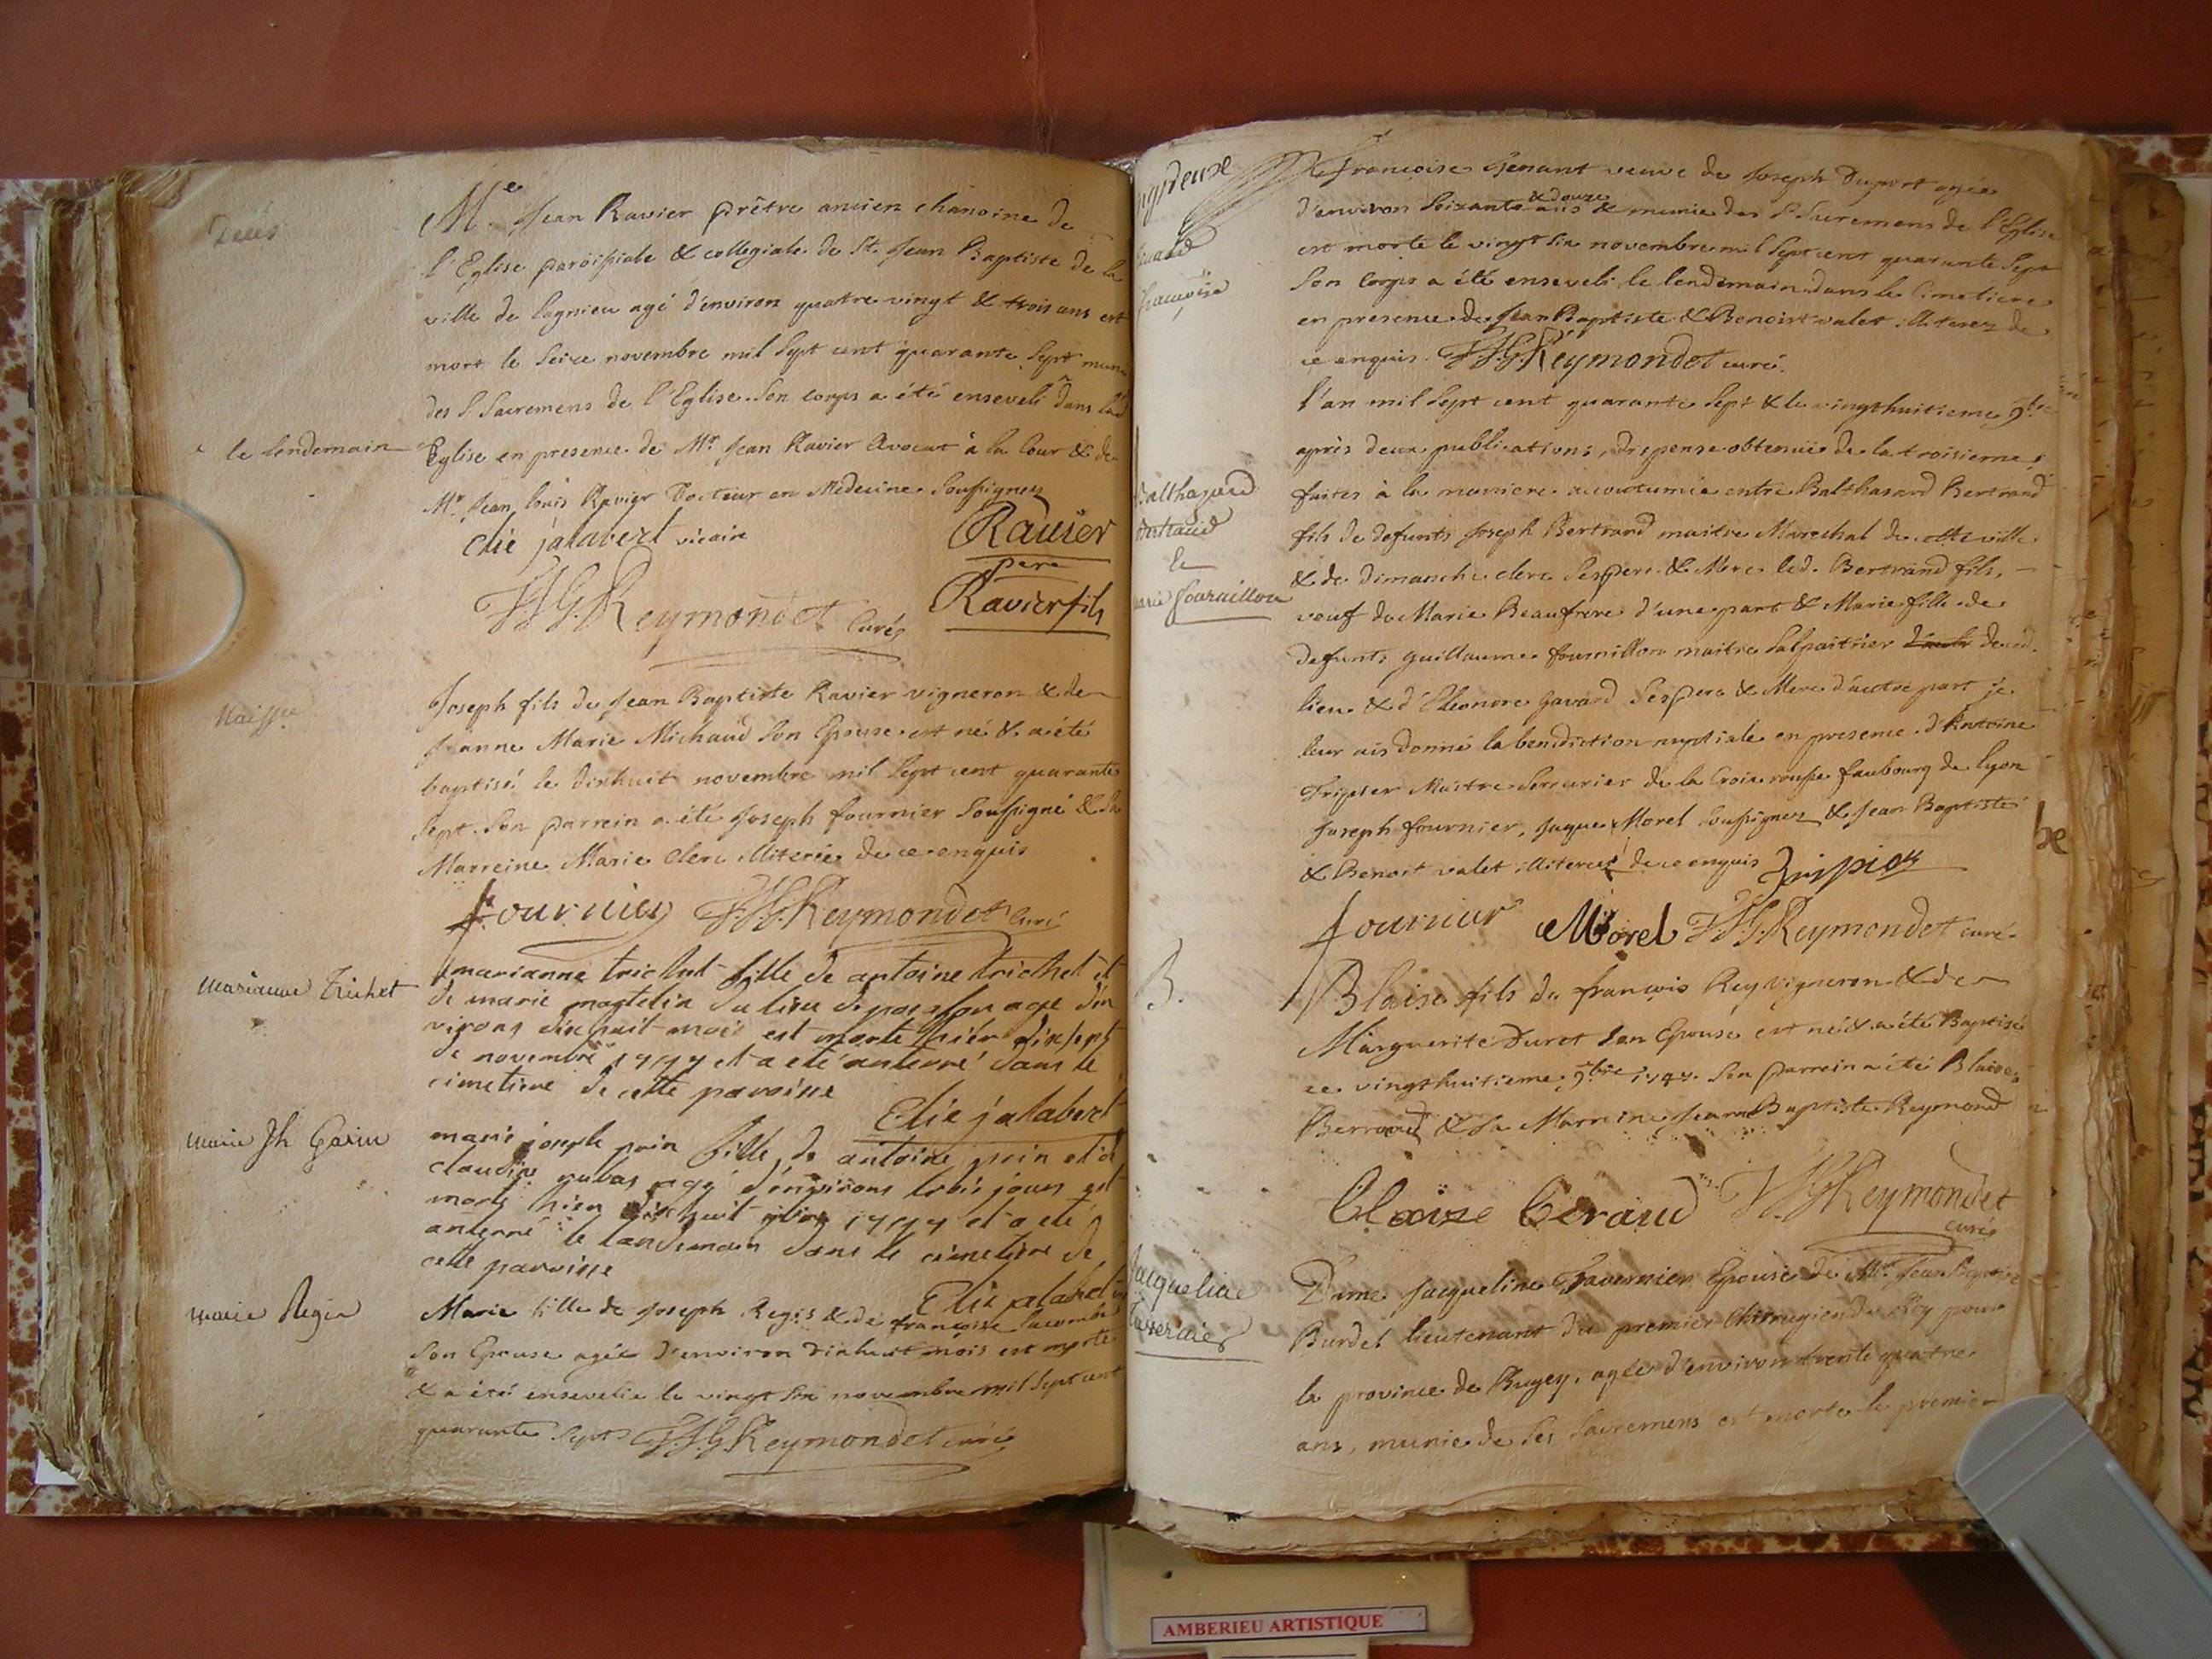 Décès
Me. Jean Ravier prêtre ancien chanoine de
l'Eglise paroissiale & collegiale de St. Jean Baptiste de la
ville de lagnieu agé d'environ quatre vingt & trois ans est
mort le Seize novembre mil Sept cent quarante Sept muni
des S. Sacremens de l'Eglise. Son corps a été enseveli dans lad
le lendemain
Eglise en presence de Mr. Jean Ravier Avocat à la Cour & de
Mr. Jean louis Ravier Docteur en Medecine Soussignez
Elie jalabert vicaire
Ravier
pere
Reymondet Curé
Ravier fils
Naisse
Joseph fils de Jean Baptiste Ravier vigneron & de
Jeanne Marie Michaud Son Epouse est né & a été
baptisé le dixhuit novembre mil Sept cent quarante
Sept. Son parrein a été Joseph fournier Soussigné & Sa
Marreine Marie Clerc illiterée de ce enquis
fournier Reymondet Curé
Marianne Trichet
marianne trichet fille de antoine trichet et
de marie du lieu de age d'en
virons dix huit mois est morte hier dix sept
de novembre 1747 et a eté anterré dans le
cimetiere de cette paroisse
Elie jalabert
Marie Jh
marie joseph fille de antoine et de
claudine agé d'environs trois jours est
morte hier dix huit 1747 et a eté
anterré le landemain dans le cimetiere de
cette paroisse
Elie jalabert
Marie Regis
Marie fille de Joseph Regis & de françoise Lacombe
Son Epouse agée d'environ dixhuit mois est morte
& a été ensevelie le vingt Six novembre mil Sept cent
quarante Sept Reymondet curé
françoise
françoise veuve de Joseph Duport agée
& douze
d'environ Soixante ans & munie des S. Sacremens de l'Eglise
est morte le vingt Six novembre mil Sept cent quarante Sept
Son Corps a été enseveli le lendemain dans le Cimetiere
en presence de Jean Baptiste & Benoist valet illiterez de
ce enquis. Reymondet curé.
l'an mil Sept cent quarante Sept & le vingthuitieme 9bre
après deux publications, dispense obtenüe de la troisieme
Balthazard
Bertrand
&
Marie fournillon
faites à la maniere accoutumée entre Balthasard Bertrand
fils de defunts Joseph Bertrand maitre Marechal de cette ville
& de Dimanche clerc Ses pere & Mere led. Bertrand fils,
veuf de Marie Beaufrere d'une part & Marie fille de
defunts guillaume fournillon maitre Salpaitrier de ced.
lieu & d'Eleonore gavard Ses pere & Mere d'autre part je
leur ais donné la benediction nuptiale en presence d'Antoine
Tripier Maitre Serrurier de la Croix rousse faubourg de lyon
Joseph fournier, Jaque Morel Soussignez & Jean Baptiste
& Benoit valet illiterez de ce enquis Tripier
fournier Morel Reymondet curé.
B.
Blaise fils de françois Rey vigneron & de
Marguerite Duret Son Epouse est né & a été Baptisé
ce vingthuitieme 9bre 1747. Son parrein a été Blaise
Berraud & Sa Marreine Jeanne Baptiste Reymond
Blaize Beraud Reymondet
curé
Jacqueline
Tavernier
Dame Jacqueline Tavernier Epouse de Mr. Jean Baptiste
Burdel lieutenant du premier Chirurgien du Roy pour
la province de Bugey, agée d'environ trente quatre
ans, munie de Ses Sacremens est morte le premier
AMBERIEU ARTISTIQUE